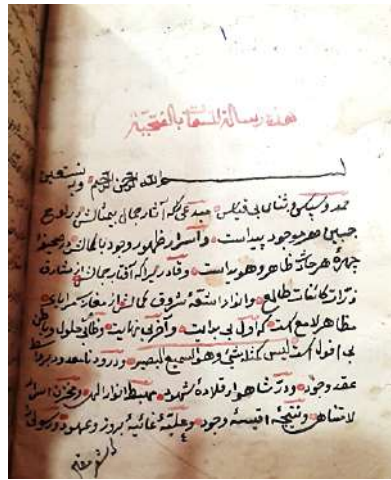 ۱
هذه رسالة المسمات بالفتحية
بسم الله الرحمن الرحیم وبه نستعین
حمد و سپاس و ثنای بی قیاس مبدعی که آثار جمال بیمثالش بر لوح
جبین هر موجود پیداست و اسرار ظهور وجود با کمالش در صحیفهٔ
چهرهٔ هر ظاهر و هویداست و قادریرا که آفتاب جمالش از مشارق
ذرات کائنات طالع و انوار اشعهٔ شروق کمالش از مغارب
مظاهر لامع است که اول بی بدایت و آخر بی نهایت و ظاهر
بی افول است لیس کمثله شیء وهو السمیع البصیر و درود نامعدود بر واسطه
عقد وجود و درّ شاهوار قلادهٔ شهود مهبط انوار الهی و مخزن اسرار
لامتناهی و نتیجهٔ اقیسهٔ وجود و علّیّهٔ غائیهٔ بروز و عهود و رسول